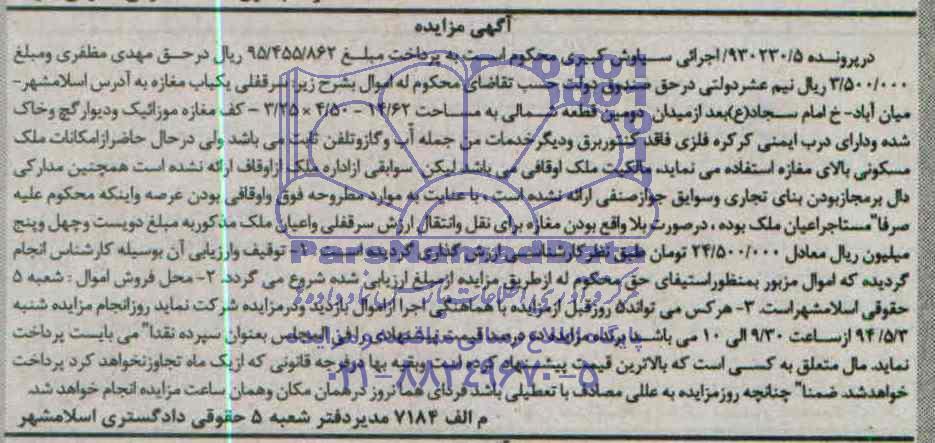 آگهی مزایده
درپرونده ۹۳۰۲۳۰/۵/ اجرائی سیاوش کبیری محکوم است به پرداخت مبلغ ۹۵/۴۵۵/۸۶۲ ریال درحق مهدی مظفری ومبلغ
۳/۵۰۰/۰۰۰ ریال نیم عشردولتی درحق صندوق دولت حسب تقاضای محکوم له اموال بشرح زیر: سرقفلی یکباب مغازه به آدرس اسلامشهر-
میان آباد- خ امام سجاد(ع)بعد ازمیدان دومین قطعه شمالی به مساحت ۱۴/۶۲ - ۴/۵۰ × ۳/۲۵ - کف مغازه موزائیک ودیوار گچ وخاک
شده ودارای درب ایمنی کرکره فلزی فاقد کنتوربرق ودیگرخدمات من جمله آب وگازوتلفن ثابت می باشد ولی درحال حاضرازامکانات ملک
مسکونی بالای مغازه استفاده می نماید، مالکیت ملک اوقافی می باشد لیکن سوابقی ازاداره ملک ازاوقاف ارائه نشده است همچنین مدارکی
دال برمجازبودن بنای تجاری وسوابق جوازصنفی ارائه نشده است، با عنایت به موارد مطروحه فوق واوقافی بودن عرصه واینکه محکوم علیه
صرفا" مستاجراعیان ملک بوده، درصورت بلا واقع بودن مغازه برای نقل وانتقال ارزش سرقفلی واعیان ملک مذکوربه مبلغ دویست وچهل وپنج
میلیون ریال معادل ۲۴/۵۰۰/۰۰۰ تومان طبق نظرکارشناسی ارزش گذاری گردیده است. ۱- توقیف وارزیابی آن بوسیله کارشناس انجام
گردیده که اموال مزبور بمنظوراستیفای حق محکوم له ازطریق مزایده ازمبلغ ارزیابی شده شروع می گردد. ۲- محل فروش اموال: شعبه ۵
حقوقی اسلامشهراست. ۳- هرکس می تواند۵ روزقبل ازمزایده با هماهنگی اجرا ازاموال بازدید ودرمزایده شرکت نماید روزانجام مزایده شنبه
۹۴/۵/۳ ازساعت ۹/۳۰ الی ۱۰ می باشد. برنده مزایده ده درصد قیمت پیشنهادی را فی المجلس بعنوان سپرده نقدا" می بایست پرداخت
نماید. مال متعلق به کسی است که بالاترین قیمت پیشنهاد کرده است وبقیه بها درفرجه قانونی که ازیک ماه تجاوزنخواهد کرد پرداخت
خواهدشد. ضمنا" چنانچه روزمزایده به عللی مصادف با تعطیلی باشد فردای هما نروز درهمان مکان وهمان ساعت مزایده انجام خواهد شد.
م الف ۷۱۸۴ مدیردفتر شعبه ۵ حقوقی دادگستری اسلامشهر
ParsNamadData
۰۲۱-۸۸۳۴۹۶۷۰-۵